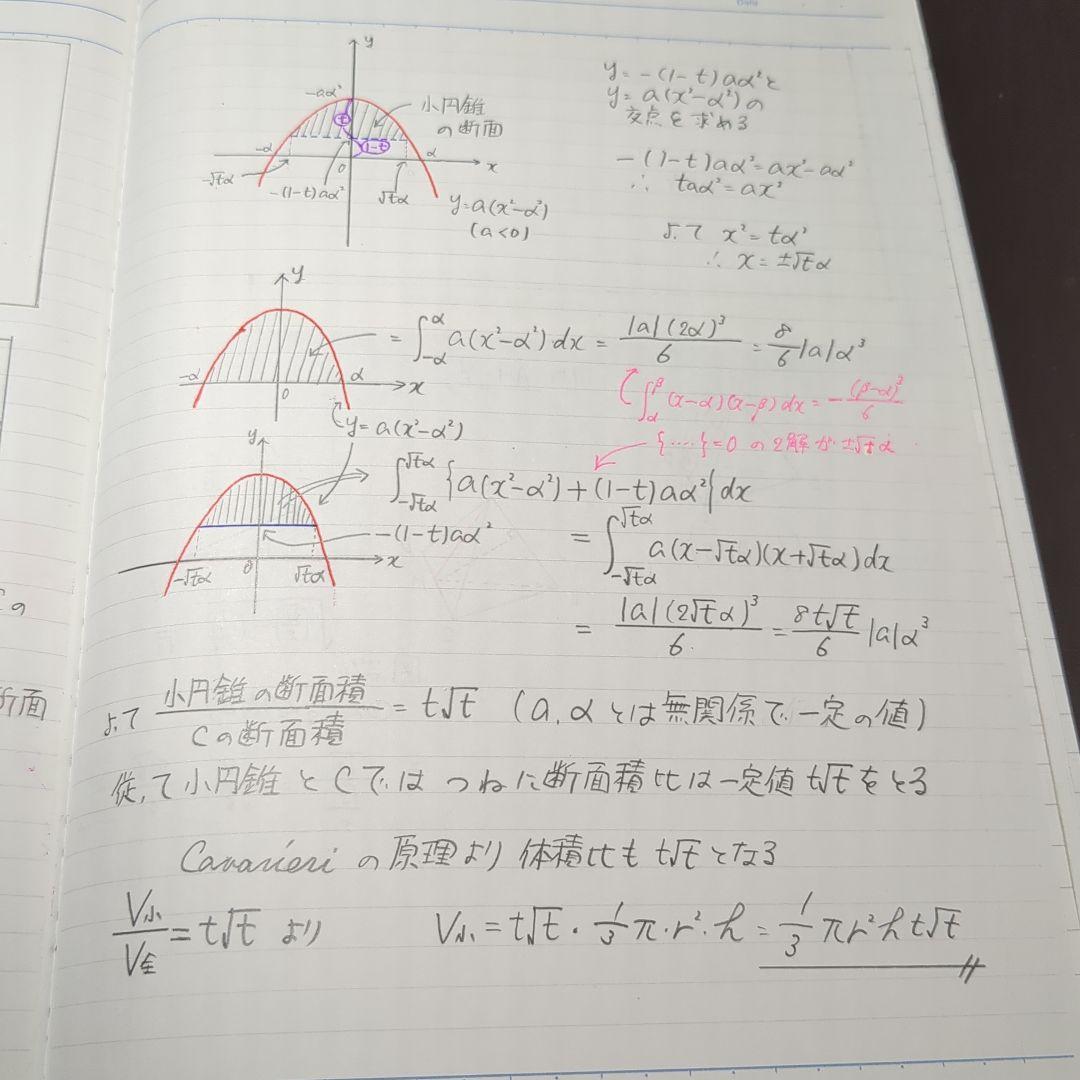 y
-aα²
小円錐
の断面
t
1-t
-α
0
α
x
-√tα
-(1-t)aα²
√tα
y=a(x²-α²)
(a<0)
y=-(1-t)aα²と
y=a(x²-α²)の
交点を求める
-(1-t)aα²=ax²-aα²
∴ taα²=ax²
よって x²=tα²
∴ x=±√tα
y
-α
0
α
x
= ∫_{-α}^{α} a(x²-α²)dx = |a|(2α)³/6 = 8/6 |a|α³
∫_α^β (x-α)(x-β)dx = -(β-α)³/6
y=a(x²-α²)
{……}=0 の2解が±√tα
y
∫_{-√tα}^{√tα} {a(x²-α²)+(1-t)aα²}dx
-(1-t)aα²
x
-√tα
0
√tα
= ∫_{-√tα}^{√tα} a(x-√tα)(x+√tα)dx
= |a|(2√tα)³/6 = 8t√t/6 |a|α³
の
断面
よって 小円錐の断面積/Cの断面積 = t√t (a,αとは無関係で一定の値)
従って小円錐とCではつねに断面積比は一定値t√tをとる
Cavarieriの原理より体積比もt√tとなる
V小/V全=t√tより V小=t√t・1/3π・r²・h=1/3πr²ht√t